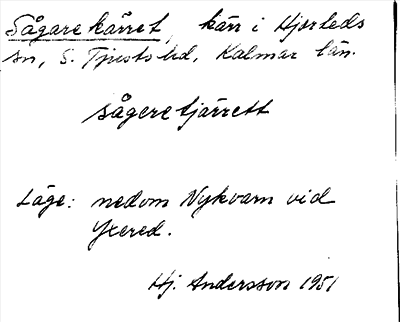 Sågarekärret, kärr i Hjorteds
sn, S. Tjusts hd, Kalmar län.
sågeretjärrett
Läge: nedom Nykvarn vid
Yxered.
Hj. Andersson 1951